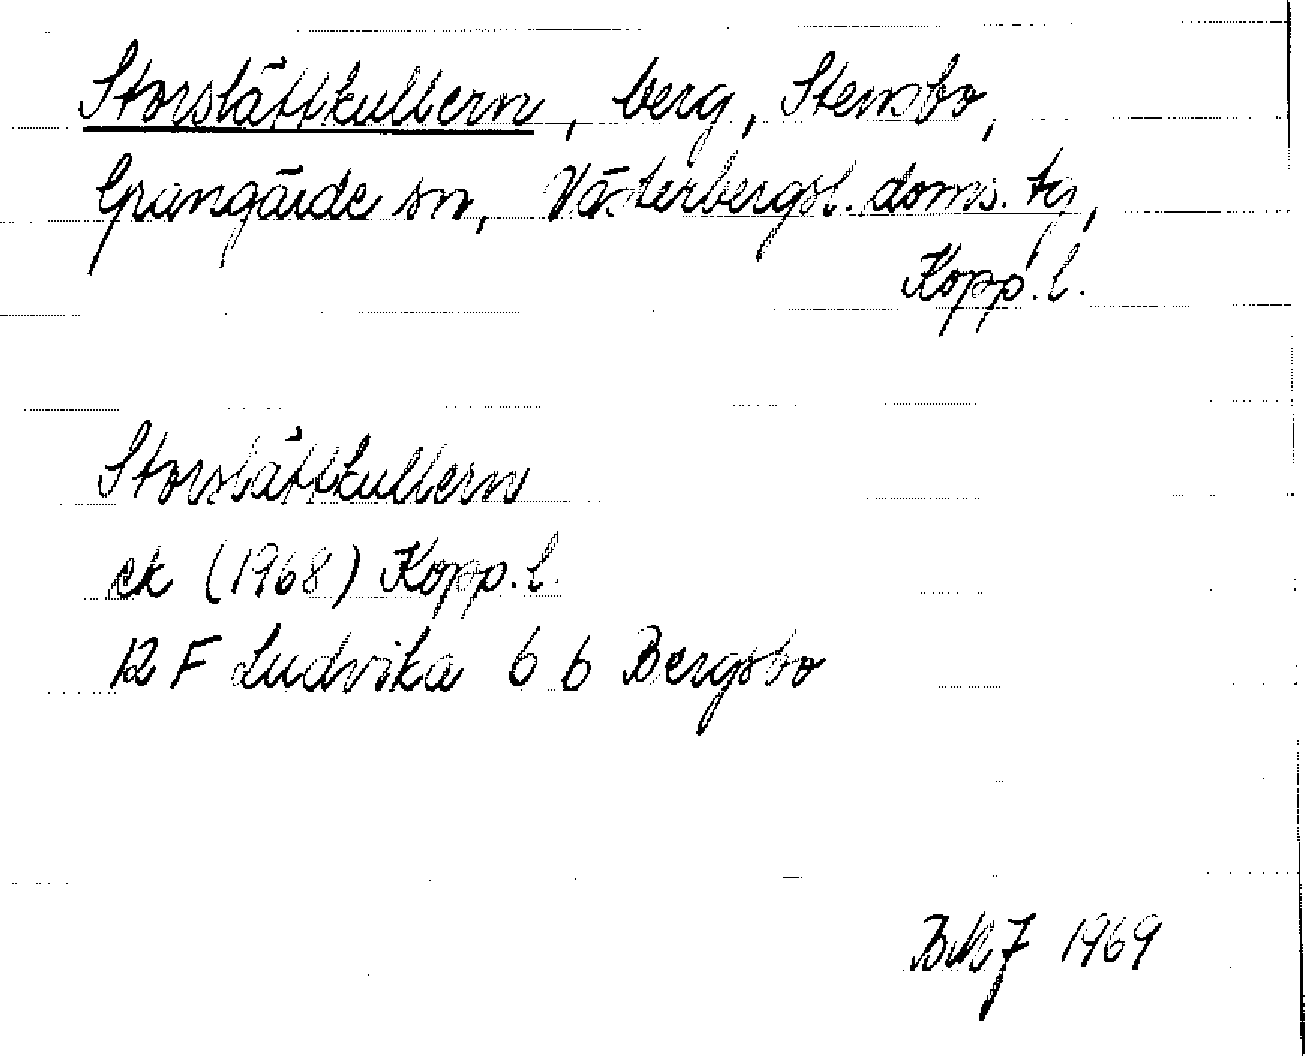 Storslättkullern, berg, Stensbo,
Grangärde sn, Västerbergsl. doms. tg,
Kopp. l.
Storslättkullern
ek (1968) Kopp. l.
12 F Ludvika 6 b Bergsbo
BMJ 1969